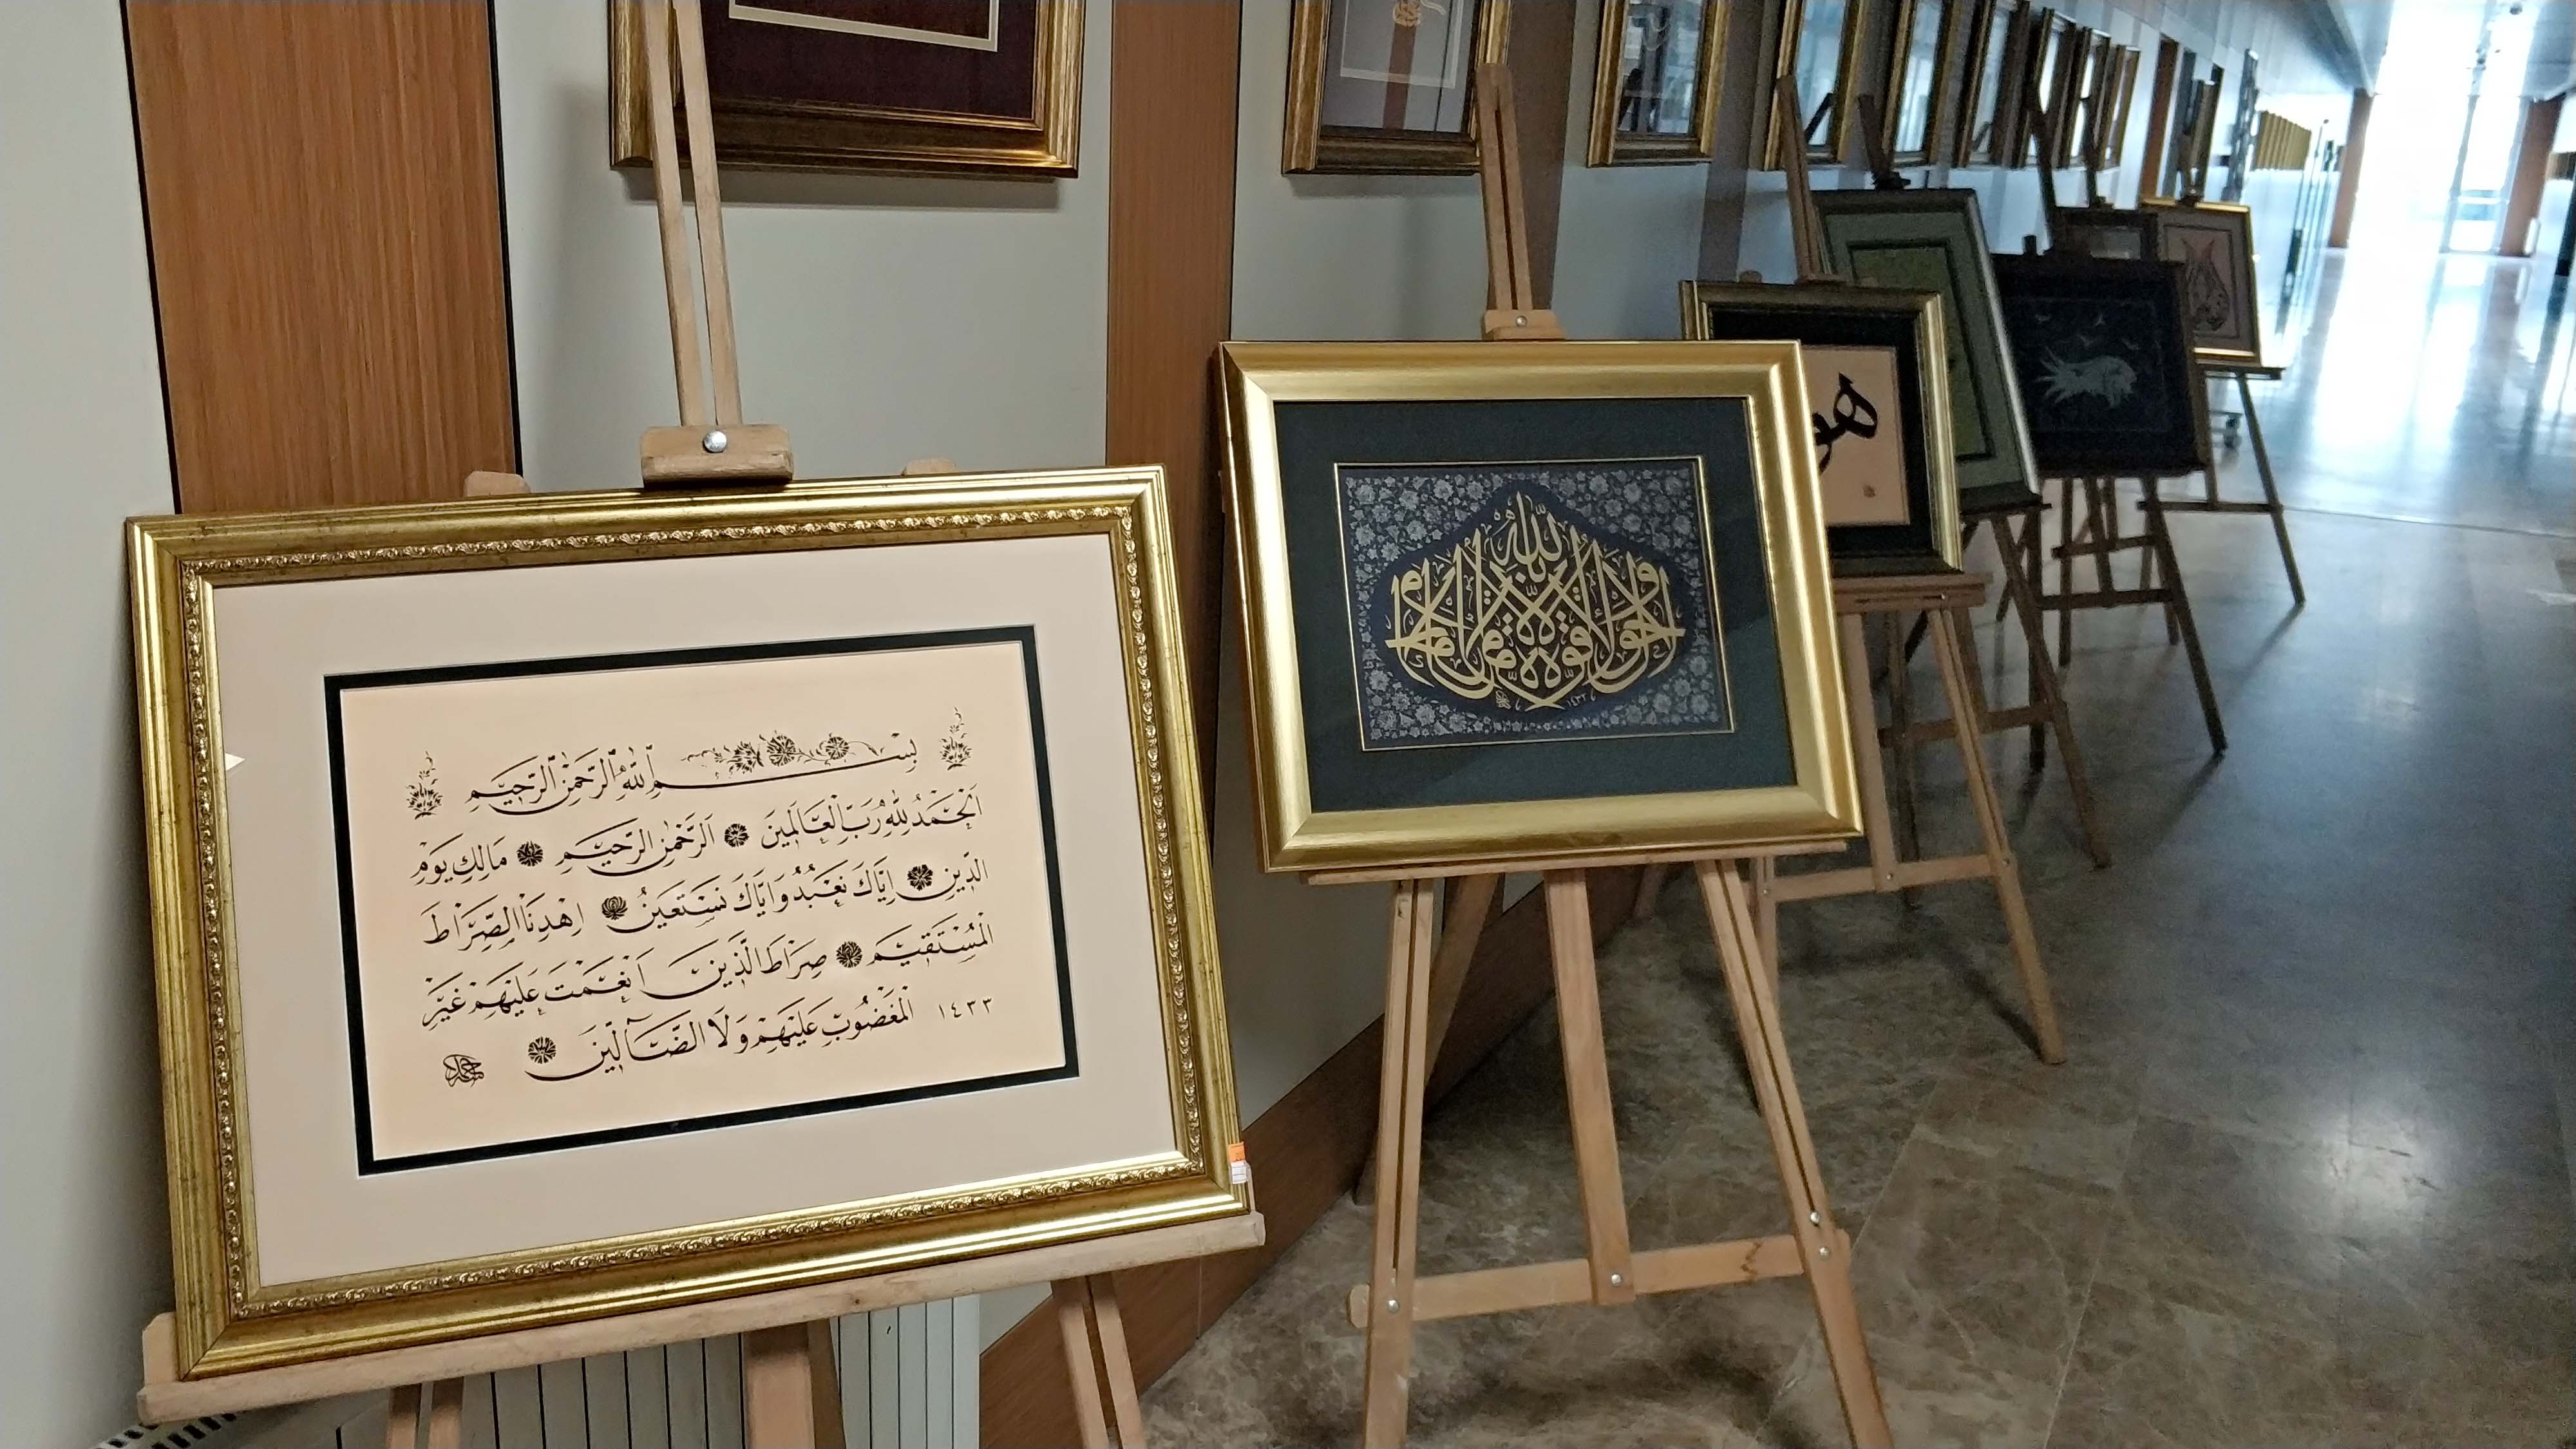 بِسْمِ ٱللّٰهِ ٱلرَّحْمٰنِ ٱلرَّحِيمِ
اَلْحَمْدُ لِلّٰهِ رَبِّ الْعَالَمِينَ اَلرَّحْمٰنِ الرَّحِيمِ مَالِكِ يَوْمِ
الدِّينِ اِيَّاكَ نَعْبُدُ وَاِيَّاكَ نَسْتَعِينُ اِهْدِنَا الصِّرَاطَ
الْمُسْتَقِيمَ صِرَاطَ الَّذِينَ اَنْعَمْتَ عَلَيْهِمْ غَيْرِ
١٤٣٣ الْمَغْضُوبِ عَلَيْهِمْ وَلَا الضَّآلِّينَ
ولا حول ولا قوة الا بالله
١٤٣٢
هو